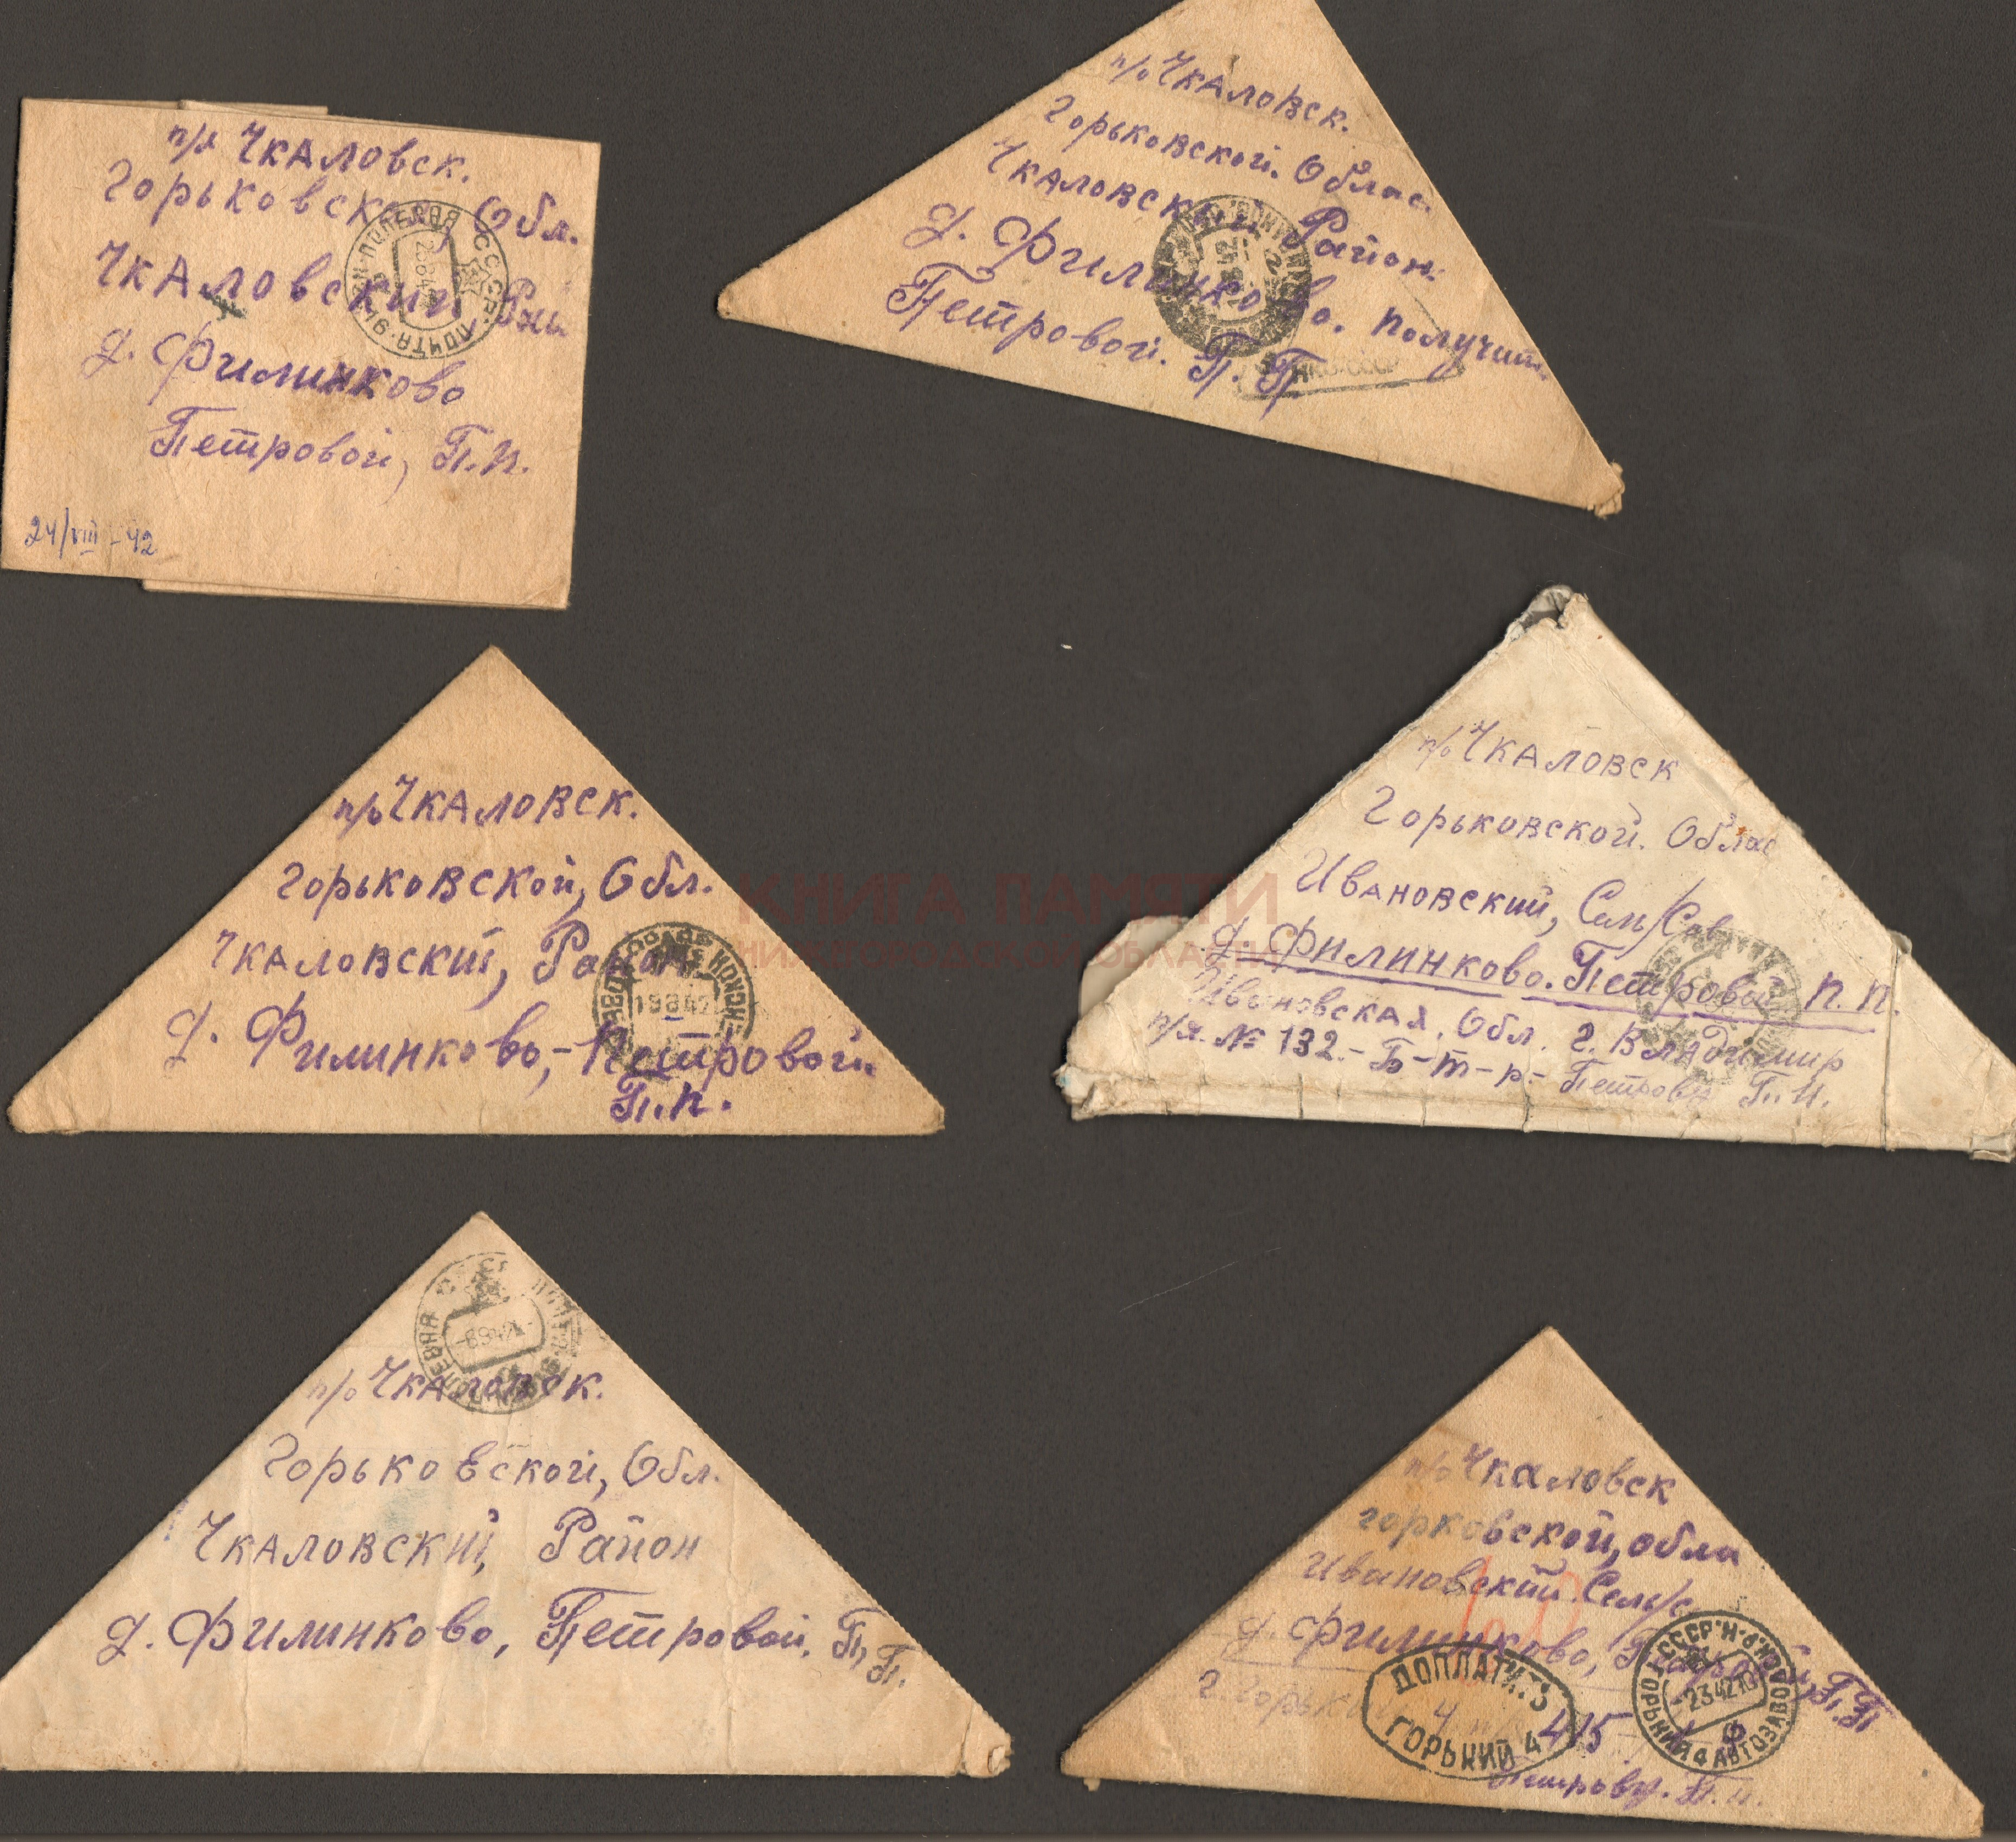 п/о Чкаловск.
Горьковской, Обл.
Чкаловский, Рай
д. Филинково
Петровой, П.П.
24/VIII-42
п/о Чкаловск.
Горьковской. Облас.
Чкаловский Район.
д. Филинково. Получить
Петровой. П. П
п/о Чкаловск.
Горьковской, Обл.
Чкаловский, Район
д. Филинково,-Петровой
П.П.
19 8 42
п/о Чкаловск
Горьковской. Облас
Ивановский, Сель/Сов
д. Филинково. Петровой П. П.
Ивановская. Обл. г. Владимир
п/я. № 132.-Б-т-р- Петров П. И.
КНИГА ПАМЯТИ
НИЖЕГОРОДСКОЙ ОБЛАСТИ
п/о Чкаловск.
Горьковской, Обл.
Чкаловский, Район
д. Филинково, Петровой, П, П.
п/о Чкаловск
горковской, обла
Ивановский Сель/с
д. Филинково, П.П
г. Горький 415
Петрову. П. И.
ДОПЛАТИТЬ
ГОРЬКИЙ 4
СССР
ГОРЬКИЙ 4 АВТОЗАВОД